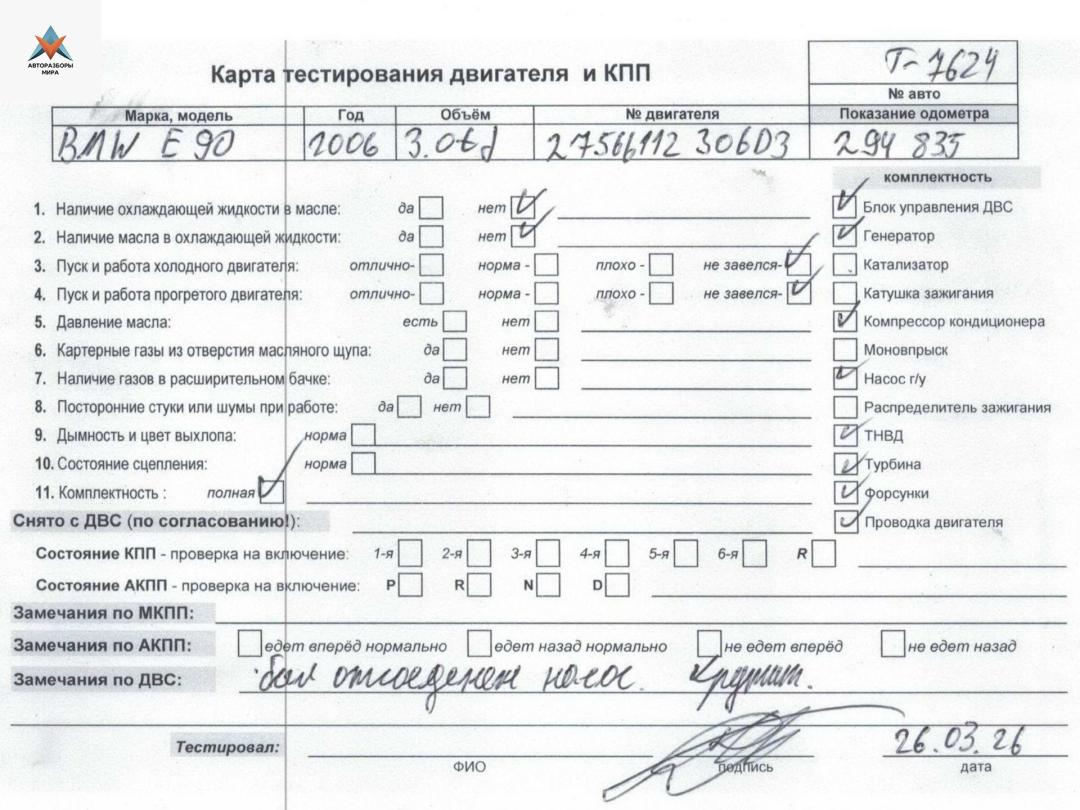 АВТОРАЗБОРЫ
МИРА
Карта тестирования двигателя и КПП
Т-7624
№ авто
Марка, модель Год Объём № двигателя Показание одометра
BMW E90 2006 3.0td 27566112 306D3 294 835
комплектность
1. Наличие охлаждающей жидкости в масле: да нет Блок управления ДВС
2. Наличие масла в охлаждающей жидкости: да нет Генератор
3. Пуск и работа холодного двигателя: отлично- норма - плохо - не завелся- Катализатор
4. Пуск и работа прогретого двигателя: отлично- норма - плохо - не завелся- Катушка зажигания
5. Давление масла: есть нет Компрессор кондиционера
6. Картерные газы из отверстия масляного щупа: да нет Моновпрыск
7. Наличие газов в расширительном бачке: да нет Насос г/у
8. Посторонние стуки или шумы при работе: да нет Распределитель зажигания
9. Дымность и цвет выхлопа: норма ТНВД
10. Состояние сцепления: норма Турбина
11. Комплектность : полная Форсунки
Снято с ДВС (по согласованию!): Проводка двигателя
Состояние КПП - проверка на включение: 1-я 2-я 3-я 4-я 5-я 6-я R
Состояние АКПП - проверка на включение: P R N D
Замечания по МКПП:
Замечания по АКПП: едет вперёд нормально едет назад нормально не едет вперёд не едет назад
Замечания по ДВС: был отсоеденен насос. Крутит.
Тестировал: 26.03.26
ФИО подпись дата